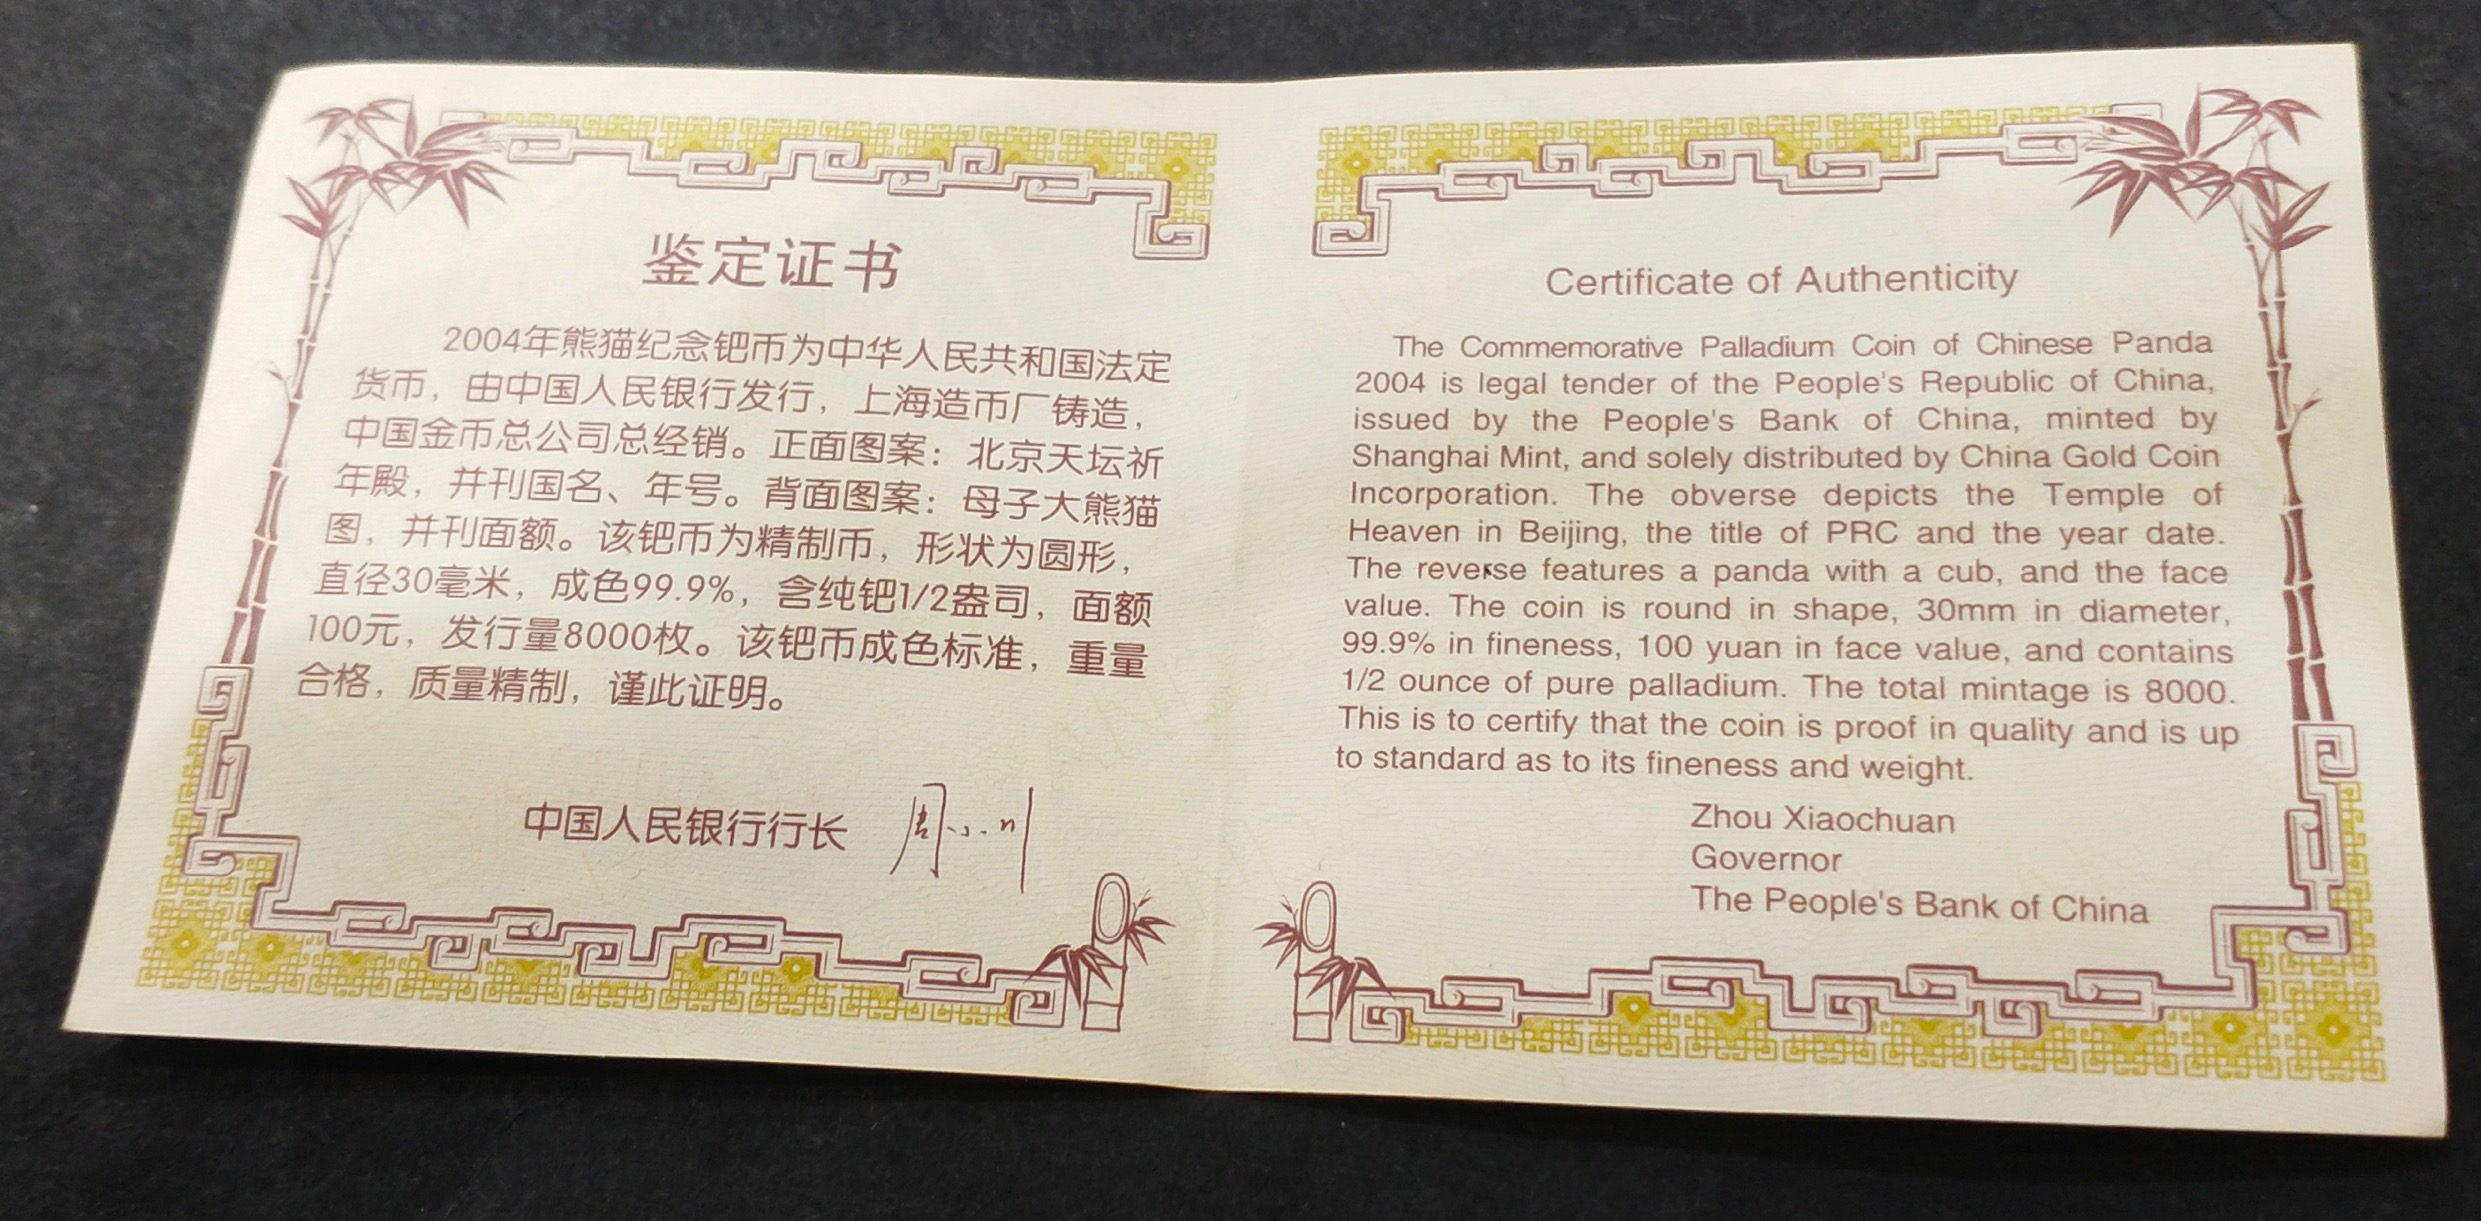 鉴定证书
2004年熊猫纪念钯币为中华人民共和国法定
货币，由中国人民银行发行，上海造币厂铸造，
中国金币总公司总经销。正面图案：北京天坛祈
年殿，并刊国名、年号。背面图案：母子大熊猫
图，并刊面额。该钯币为精制币，形状为圆形，
直径30毫米，成色99.9%，含纯钯1/2盎司，面额
100元，发行量8000枚。该钯币成色标准，重量
合格，质量精制，谨此证明。
中国人民银行行长 周小川
Certificate of Authenticity
The Commemorative Palladium Coin of Chinese Panda
2004 is legal tender of the People's Republic of China,
issued by the People's Bank of China, minted by
Shanghai Mint, and solely distributed by China Gold Coin
Incorporation. The obverse depicts the Temple of
Heaven in Beijing, the title of PRC and the year date.
The reverse features a panda with a cub, and the face
value. The coin is round in shape, 30mm in diameter,
99.9% in fineness, 100 yuan in face value, and contains
1/2 ounce of pure palladium. The total mintage is 8000.
This is to certify that the coin is proof in quality and is up
to standard as to its fineness and weight.
Zhou Xiaochuan
Governor
The People's Bank of China